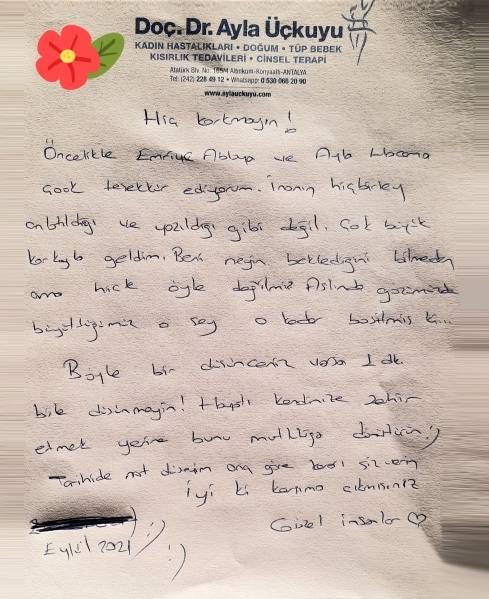 Doç. Dr. Ayla Üçkuyu
KADIN HASTALIKLARI • DOĞUM • TÜP BEBEK
KISIRLIK TEDAVİLERİ • CİNSEL TERAPİ
Atatürk Blv. No: 165/4 Altınkum-Konyaaltı-ANTALYA
Tel: (242) 228 49 12 • Whatsapp: 0 530 066 20 90
www.aylauckuyu.com
Hiç korkmayın!
Öncelikle Emriye Ablaya ve Ayla Hocama
çook teşekkür ediyorum. İnanın hiçbirşey
anlatıldığı ve yazıldığı gibi değil. Çok büyük
korkuyla geldim. Beni neyin beklediğini bilmeden
ama hiçk öyle değilmiş Aslında gözümüzde
büyüttüğümüz o şey o kadar basitmiş ki...
Böyle bir düşünceniz varsa 1 dk.
bile düşünmeyin! Hayatı kendinize zehir
etmek yerine bunu mutluluğa dönüştürün :)
Tarihide not düşeyim ona göre
İyi ki karşıma çıkmışsınız
Güzel insanlar ♡
Eylül 2021 :)
:)